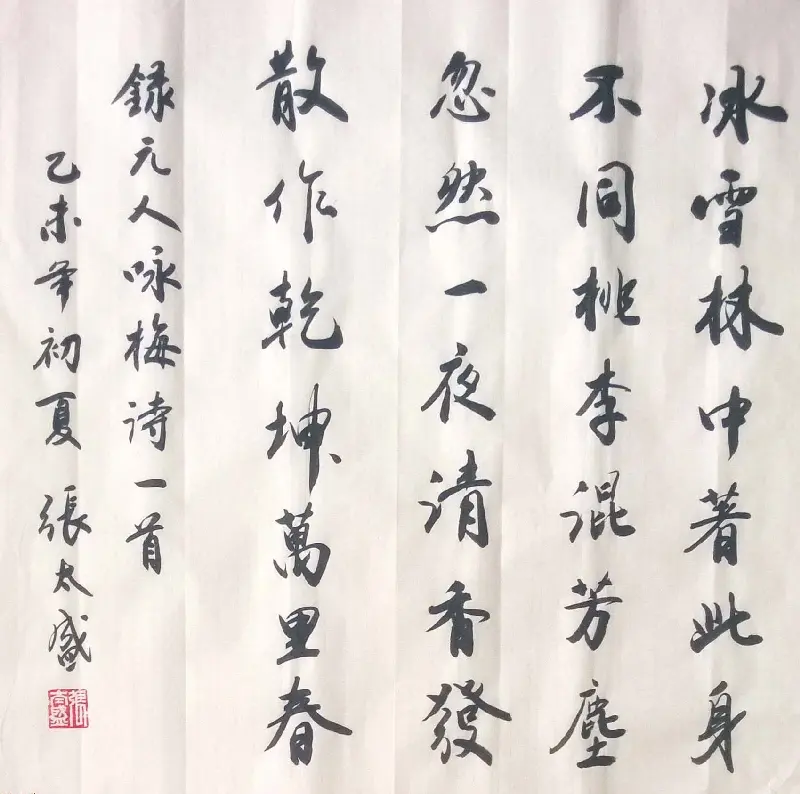 冰雪林中著此身
不同桃李混芳塵
忽然一夜清香發
散作乾坤萬里春
録元人咏梅诗一首
乙未年初夏 張太盛
張太盛